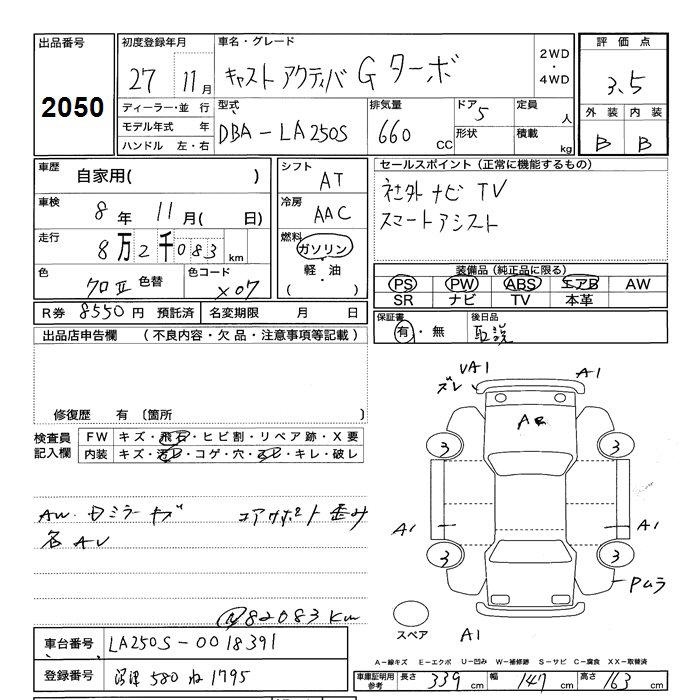 出品番号 2050
初度登録年月 27年 11月
車名・グレード キャスト アクティバ G ターボ
2WD・4WD
評価点 3.5
外装 内装
B B
ディーラー・並行
モデル年式 年
ハンドル 左・右
型式 DBA-LA250S
排気量 660 CC
ドア 5
形状
定員 人
積載 kg
車歴 自家用( )
車検 8年 11月( 日)
走行 8万2千083 km
色 クロⅡ 色替
色コード X07
シフト AT
冷房 AAC
燃料 ガソリン
軽油
( )
セールスポイント(正常に機能するもの)
社外ナビ TV
スマートアシスト
装備品(純正品に限る)
PS PW ABS エアB AW
SR ナビ TV 本革
R券 8550円 預託済 名変期限 月 日
保証書 有・無
後日品 取説
出品店申告欄 (不良内容・欠品・注意事項等記載)
修復歴 有〔箇所 〕
検査員記入欄
FW キズ・飛石・ヒビ割・リペア跡・X要
内装 キズ・汚レ・コゲ・穴・スレ・キレ・破レ
AW. ミラーキズ エアサポート歪み
各AU
82083km
車台番号 LA250S-0018391
登録番号 沼津 580 ね 1795
UA1
ズレ
A1
3 3
A1 A1
3 3
Pムラ
スペア
A1
A-線キズ E-エクボ U-凹み W-補修跡 S-サビ C-腐食 XX-取替済
車庫証明用参考 長さ 339cm 幅 147cm 高さ 163cm